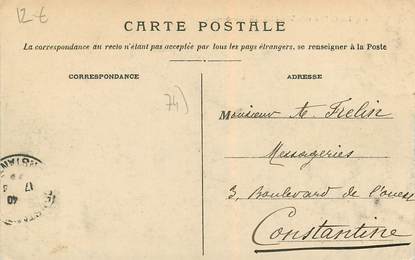 12-€
CARTE POSTALE
La correspondance au recto n'étant pas acceptée par tous les pays étrangers, se renseigner à la Poste
CORRESPONDANCE
ADRESSE
74)
Monsieur A. Frelin
Messageries
3, Boulevard de l'ouest
Constantine
17
40